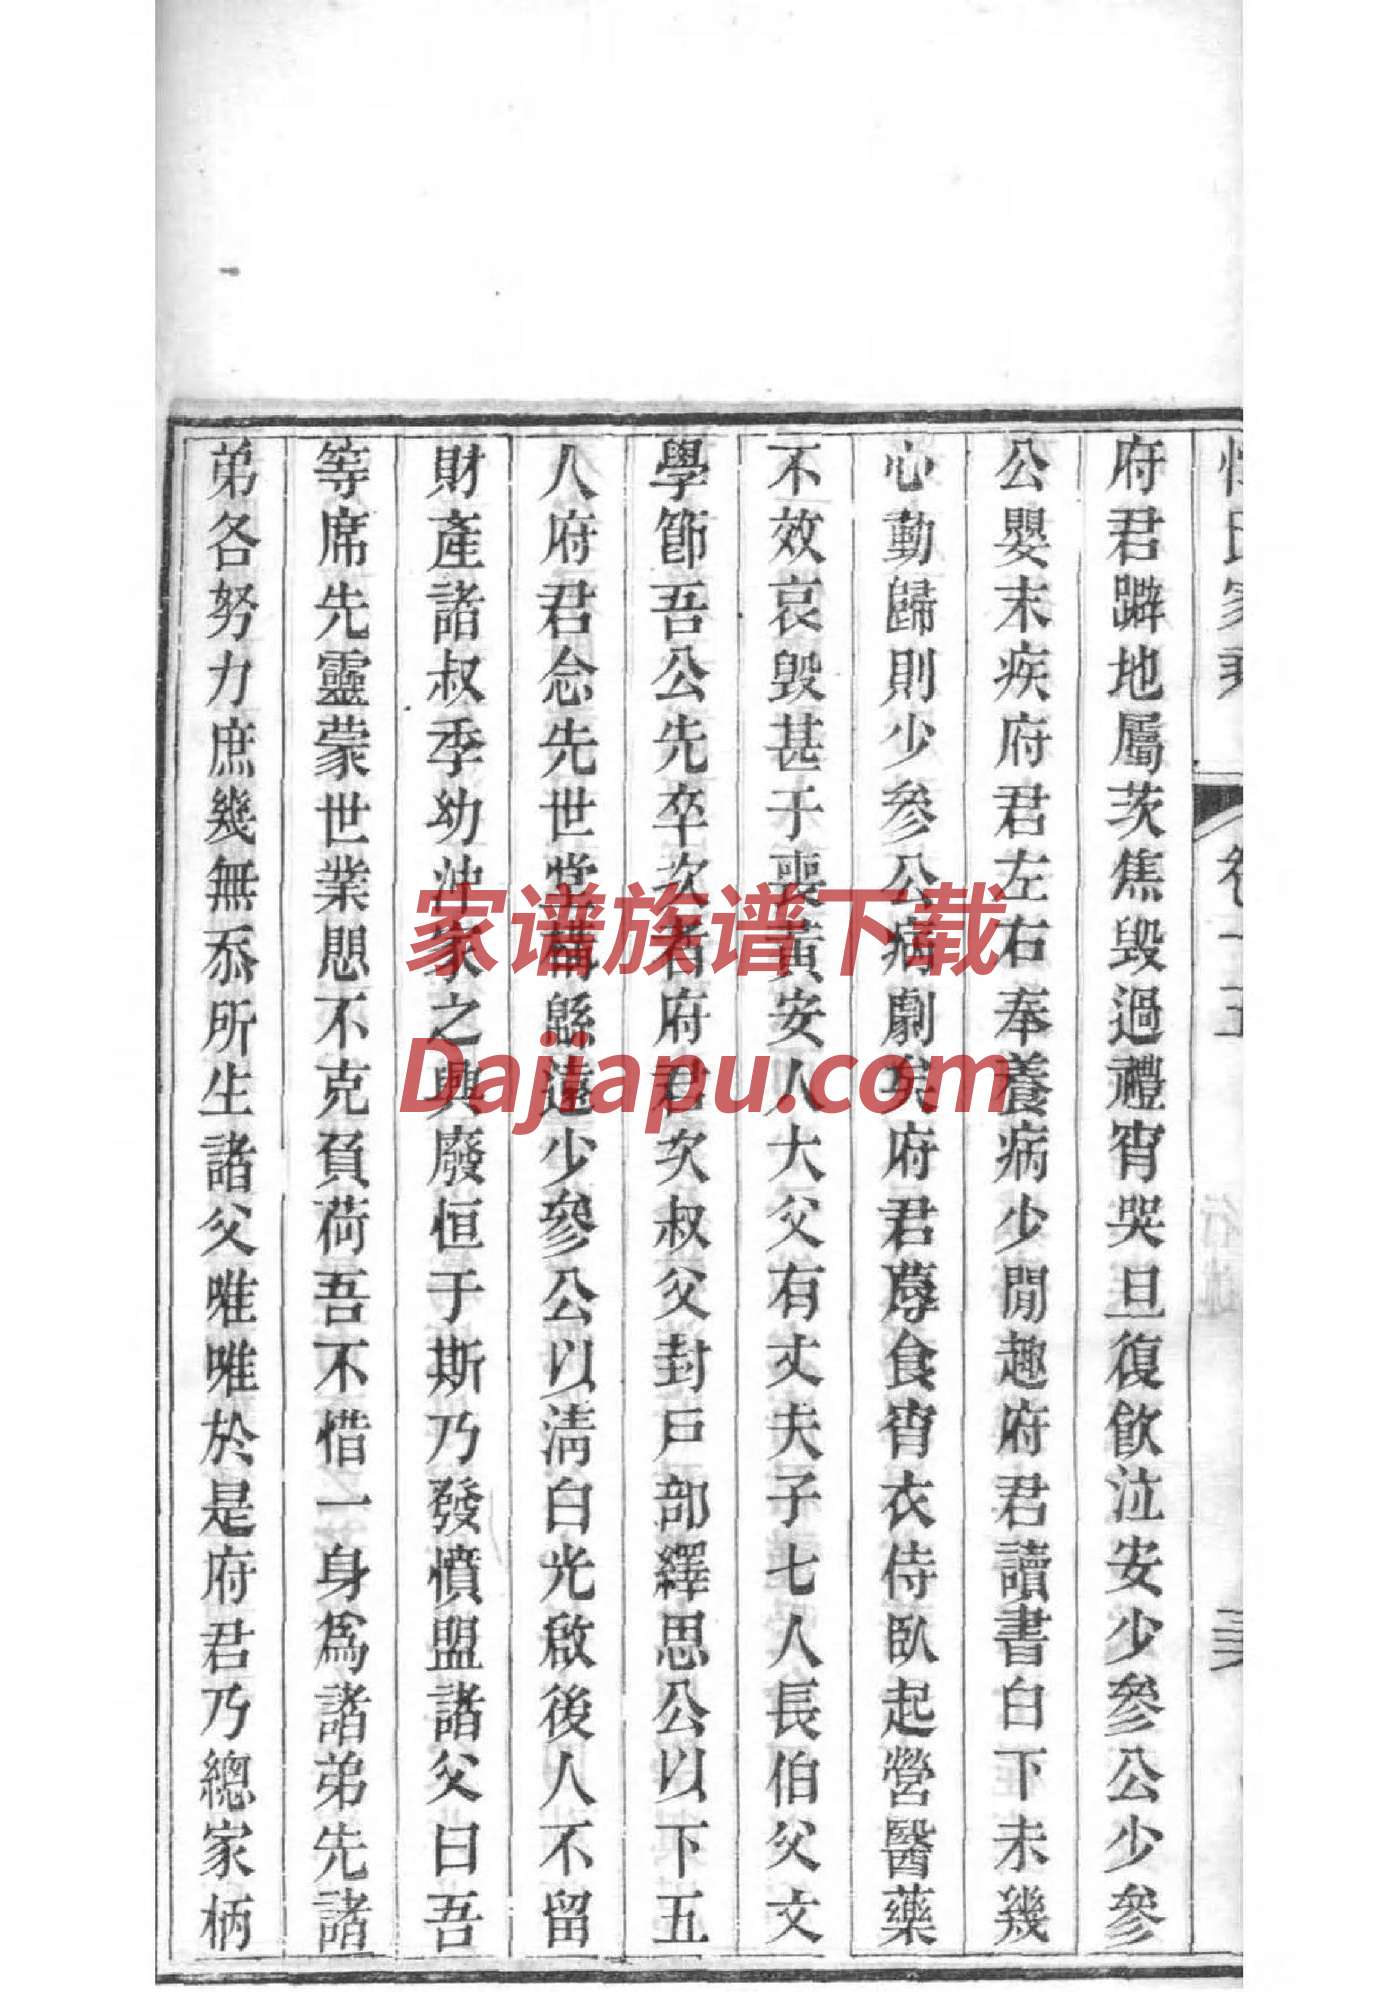 府君躃地屬茨焦毀過禮宵哭旦復飮泣安少參公少參
公嬰末疾府君左右奉養病少閒趣府君讀書白下未幾
心動歸則少參公病劇矣府君蓐食宵衣侍臥起營醫藥
不效哀毀甚于喪黃安人大父有丈夫子七人長伯父文
學節吾公先卒次者府君次叔父封戶部繹思公以下五
人府君念先世堂構緜遠少參公以淸白光啟後人不留
財產諸叔季幼沖家之興廢恒于斯乃發憤盟諸父曰吾
等席先靈蒙世業思不克負荷吾不惜一身爲諸弟先諸
弟各努力庶幾無忝所生諸父唯唯於是府君乃總家柄
氏家
行述
家谱族谱下载
Dajiapu.com